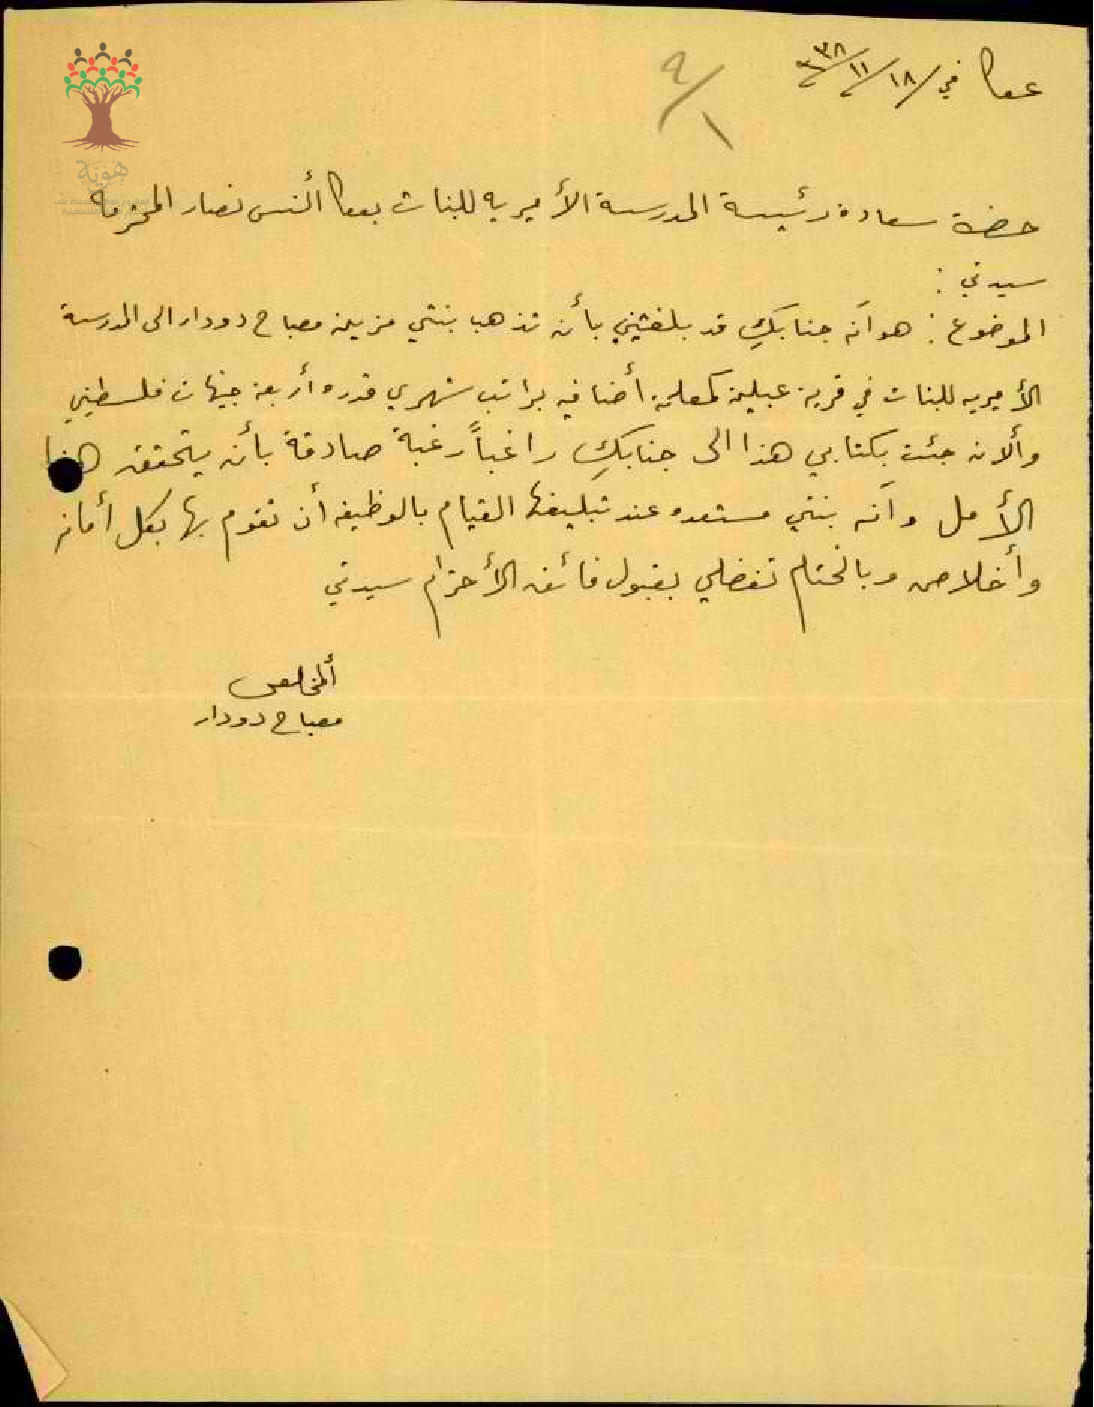 عكا في ١٨/١١/٩٣٨
٩/١
هوية
حضرة سعادة رئيسة المدرسة الأميريه للبنات بعكا ألنس نصار المحترمه
سيدتي :
الموضوع : هو أنه جنابكِ قد بلغتيني بأن تذهب بنتي نزيهه مصباح دودار الى المدرسة
الأميريه للبنات في قرية عبلين كمعلمة أضافيه براتب شهري قدره أربعة جنيهات فلسطيني
وألان جئت بكتابي هذا الى جنابكِ راغباً رغبة صادقة بأن يتحقق هذا
الأمل وأنه بنتي مستعده عند تبليغها القيام بالوظيفه أن تقوم بها بكل أمانه
وأخلاص وبالختام تفضلي بقبول فائق الأحترام سيدتي
ألمخلص
مصباح دودار